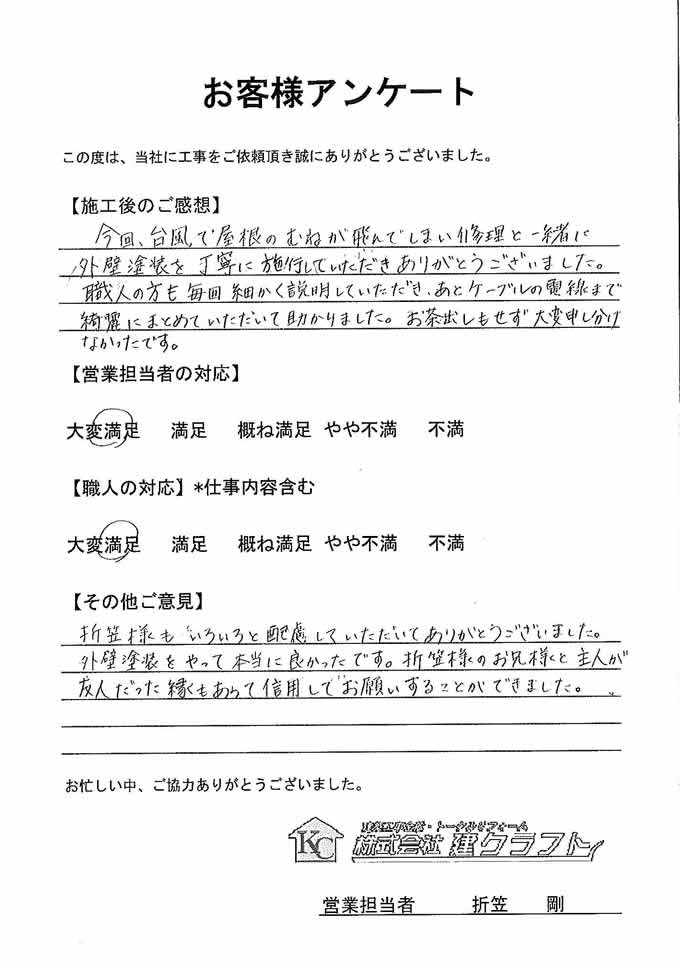 お客様アンケート
この度は、当社に工事をご依頼頂き誠にありがとうございました。
【施工後のご感想】
今回、台風で屋根のむねが飛んでしまい修理と一緒に
外壁塗装を丁寧に施行していただきありがとうございました。
職人の方も毎回細かく説明していただき、あとケーブルの電線まで
綺麗にまとめていただいて助かりました。お茶出しもせず大変申し分け
なかったです。
【営業担当者の対応】
大変満足 満足 概ね満足 やや不満 不満
【職人の対応】*仕事内容含む
大変満足 満足 概ね満足 やや不満 不満
【その他ご意見】
折笠様もいろいろと配慮していただいてありがとうございました。
外壁塗装をやって本当に良かったです。折笠様のお兄様と主人が
友人だった縁もあって信用してお願いすることができました。
お忙しい中、ご協力ありがとうございました。
KC
株式会社 建クラフト
営業担当者 折笠 剛